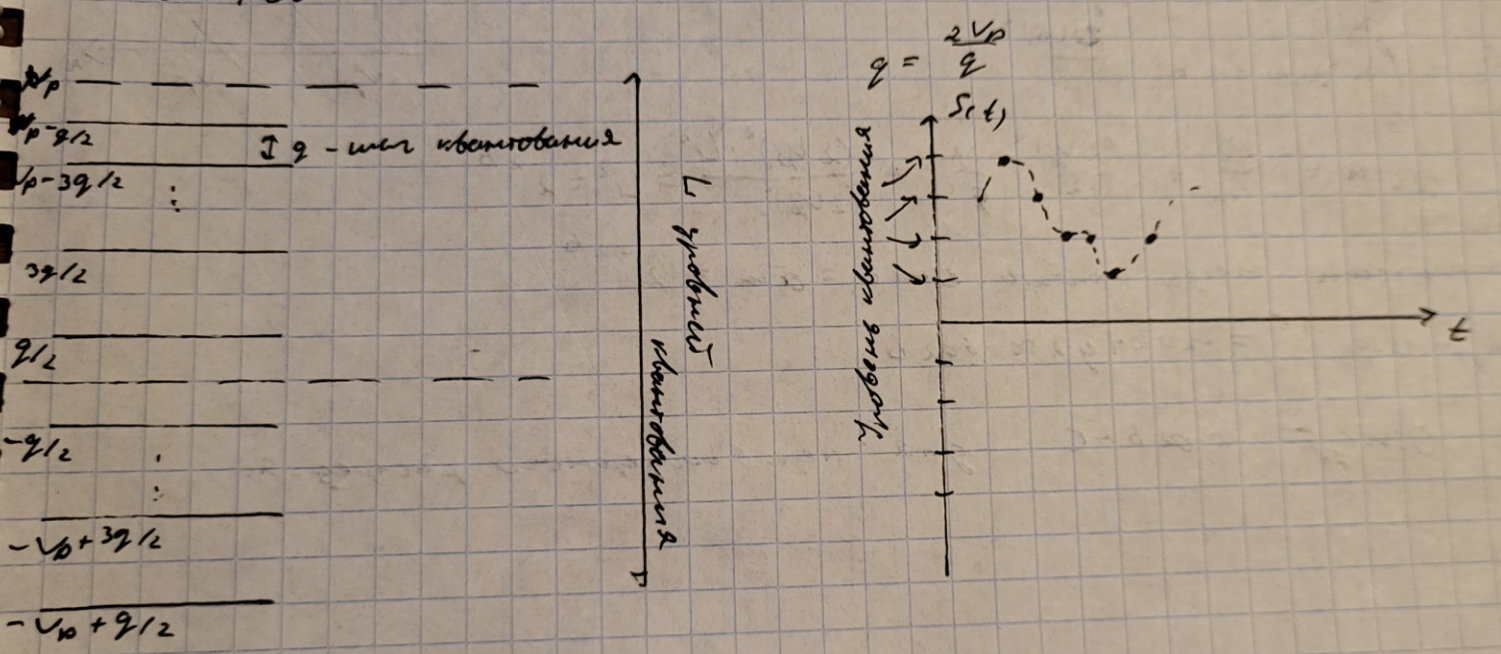 Vp
Vp-q/2
I q - шаг квантования
Vp-3q/2
3q/2
q/2
-q/2
-Vp+3q/2
-Vp+q/2
L уровней
квантования
q = 2Vp/q
S(t)
Уровень квантования
t